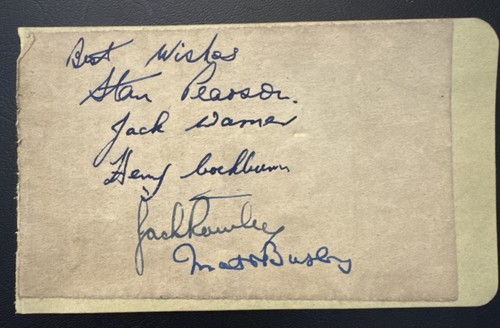 Best Wishes
Stan Pearson.
Jack Warner
Henry Cockburn
Jack Rowley
Matt Busby